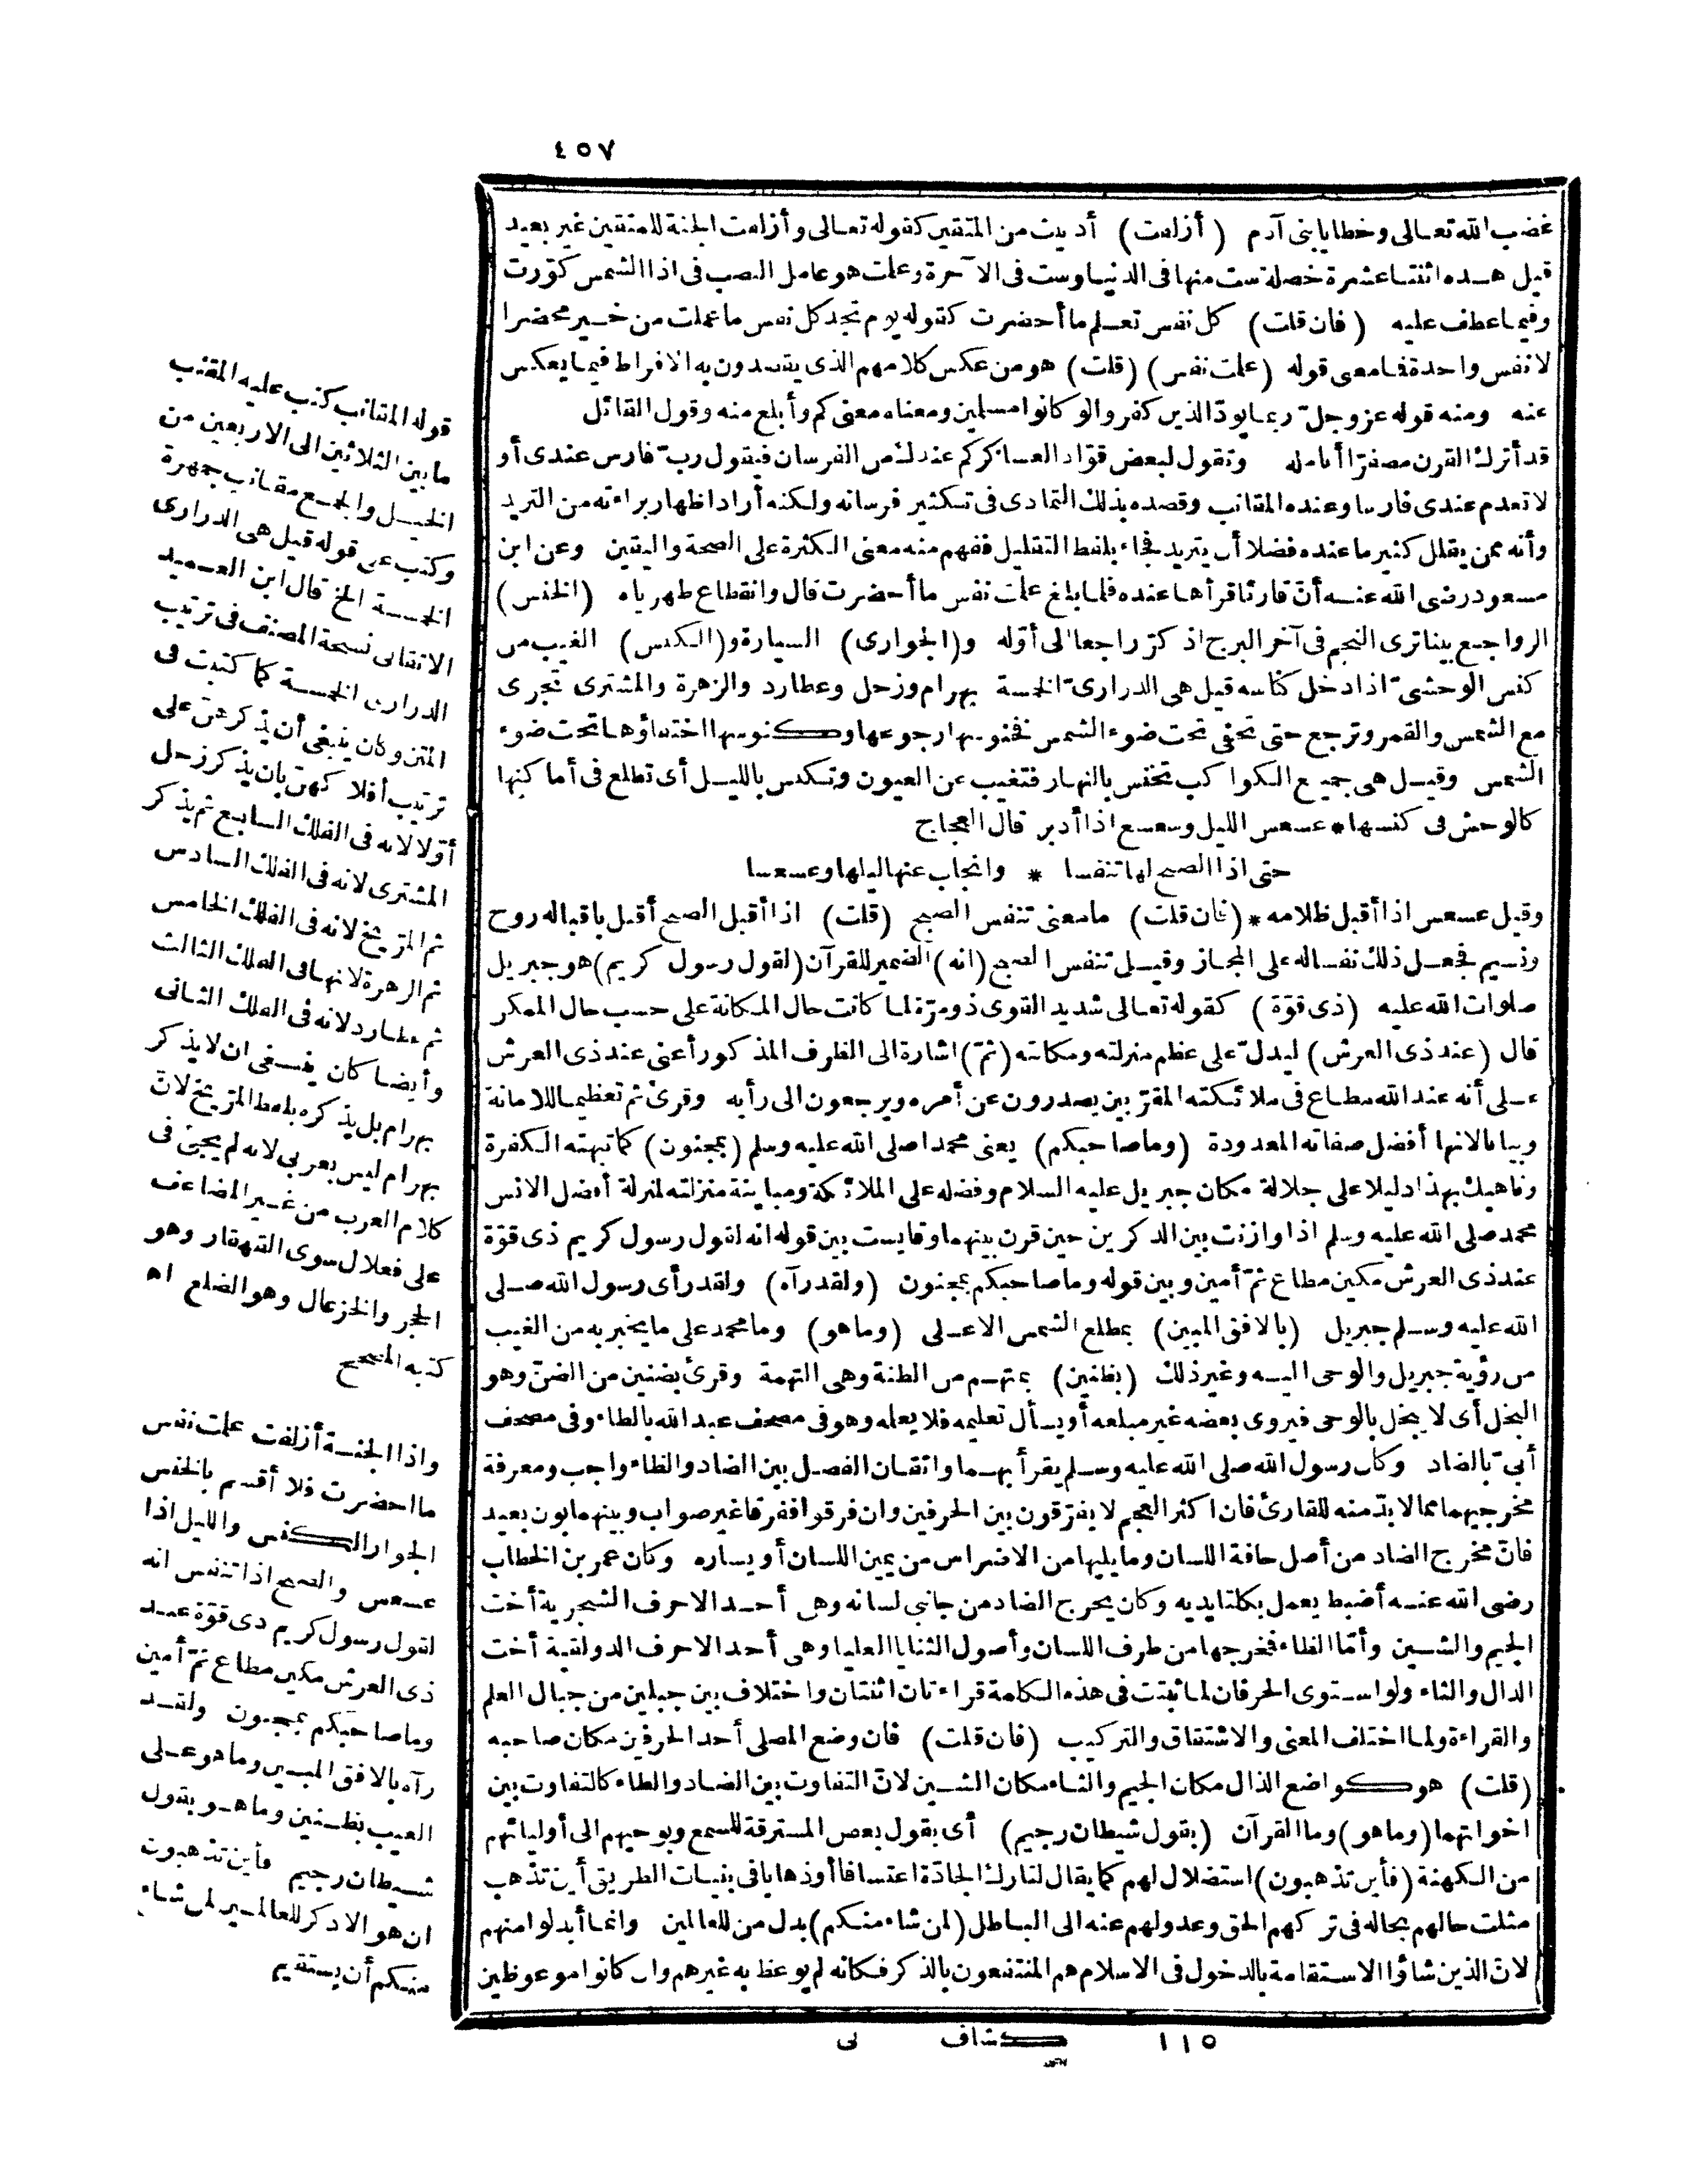 ٤٥٧
غضب الله تعالى وخطايا بنى آدم (أزلفت) أدنيت من المتقين كقوله تعالى وأزلفت الجنة للمتقين غير بعيد
قيل هذه اثنتا عشرة خصلة ست منها فى الدنيا وست فى الآخرة وعلمت هو عامل النصب فى اذا الشمس كورت
وفيما عطف عليه (فان قلت) كل نفس تعلم ما أحضرت كقوله يوم تجد كل نفس ما عملت من خير محضرا
لا نفس واحدة فما معى قوله (علمت نفس) (قلت) هو من عكس كلامهم الذى يقصدون به الافراط فيما يعكس
عنه ومنه قوله عز وجلّ ربما يودّ الذين كفروا لو كانوا مسلمين ومعناه معنى كم وأبلغ منه وقول القائل
قد أترك القرن مصفرّا أنامله وتقول لبعض قوّاد العساكر كم عندك من الفرسان فيقول ربّ فارس عندى أو
لا تعدم عندى فارسا وعنده المقانب وقصده بذلك التمادى فى تكثير فرسانه ولكنه أراد اظهار براءته من التزيد
وأنه ممن يقلل كثير ما عنده فضلا أن يتزيد فجاء بلفظ التقليل ففهم منه معنى الكثرة على الصحة واليقين وعن ابن
مسعود رضى الله عنه أنّ قارئا قرأها عنده فلما بلغ علمت نفس ما أحضرت قال وانقطاع ظهرياه (الخنس)
الرواجع بينا ترى النجم فى آخر البرج اذ كرّ راجعا الى أوّله و(الجوارى) السيارة و(الكنس) الغيب من
كنس الوحشىّ اذا دخل كناسه قيل هى الدرارىّ الخمسة بهرام وزحل وعطارد والزهرة والمشترى تجرى
مع الشمس والقمر وترجع حتى تخفى تحت ضوء الشمس فخنوسها رجوعها وكنوسها اختفاؤها تحت ضوء
الشمس وقيل هى جميع الكواكب تخنس بالنهار فتغيب عن العيون وتكنس بالليل أى تطلع فى أماكنها
كالوحش فى كنسها * عسعس الليل وسعسع اذا أدبر قال العجاج
حتى اذا الصبح لها تنفسا * وانجاب عنها ليلها وعسعسا
وقيل عسعس اذا أقبل ظلامه * (فان قلت) ما معنى تنفس الصبح (قلت) اذا أقبل الصبح أقبل باقباله روح
ونسيم فجعل ذلك نفسا له على المجاز وقيل تنفس الصبح (انه) الضمير للقرآن (لقول رسول كريم) هو جبريل
صلوات الله عليه (ذى قوّة) كقوله تعالى شديد القوى ذو مرّة لما كانت حال المكانة على حسب حال الممكن
قال (عند ذى العرش) ليدلّ على عظم منزلته ومكانته (ثمّ) اشارة الى الظرف المذكور أعنى عند ذى العرش
على أنه عند الله مطاع فى ملائكته المقرّبين يصدرون عن أمره ويرجعون الى رأيه وقرئ ثم تعظيما للامانة
وبيانا لانها أفضل صفاته المعدودة (وما صاحبكم) يعنى محمدا صلى الله عليه وسلم (بمجنون) كما تبهته الكفرة
وناهيك بهذا دليلا على جلالة مكان جبريل عليه السلام وفضله على الملائكة ومباينة منزلته لمنزلة أفضل الانس
محمد صلى الله عليه وسلم اذا وازنت بين الذكرين حين قرن بينهما وقايست بين قوله انه لقول رسول كريم ذى قوّة
عند ذى العرش مكين مطاع ثمّ أمين وبين قوله وما صاحبكم بمجنون (ولقد رآه) ولقد رأى رسول الله صلى
الله عليه وسلم جبريل (بالافق المبين) بمطلع الشمس الاعلى (وما هو) وما محمد على ما يخبر به من الغيب
من رؤية جبريل والوحى اليه وغير ذلك (بظنين) بمتهم من الظنة وهى التهمة وقرئ بضنين من الضنّ وهو
البخل أى لا يبخل بالوحى فيزوى بعضه غير مبلغه أو يسأل تعليمه فلا يعلمه وهو فى مصحف عبد الله بالظاء وفى مصحف
أبىّ بالضاد وكان رسول الله صلى الله عليه وسلم يقرأ بهما واتقان الفصل بين الضاد والظاء واجب ومعرفة
مخرجيهما مما لا بدّ منه للقارئ فان أكثر العجم لا يفرّقون بين الحرفين وان فرقوا ففرقا غير صواب وبينهما بون بعيد
فانّ مخرج الضاد من أصل حافة اللسان وما يليها من الاضراس من يمين اللسان أو يساره وكان عمر بن الخطاب
رضى الله عنه أضبط يعمل بكلتا يديه وكان يخرج الضاد من جانبى لسانه وهى أحد الاحرف الشجرية أخت
الجيم والشين وأمّا الظاء فمخرجها من طرف اللسان وأصول الثنايا العليا وهى أحد الاحرف الذولقية أخت
الذال والثاء ولو استوى الحرفان لما ثبتت فى هذه الكلمة قراءتان اثنتان واختلاف بين جبلين من جبال العلم
والقراءة ولما اختلف المعنى والاشتقاق والتركيب (فان قلت) فان وضع المصلى أحد الحرفين مكان صاحبه
(قلت) هو كواضع الذال مكان الجيم والثاء مكان الشين لانّ التفاوت بين الضاد والظاء كالتفاوت بين
اخواتهما (وما هو) وما القرآن (بقول شيطان رجيم) أى بقول بعض المسترقة للسمع وبوحيهم الى أوليائهم
من الكهنة (فأين تذهبون) استضلال لهم كما يقال لتارك الجادّة اعتسافا أو ذهابا فى بنيات الطريق أين تذهب
مثلت حالهم بحاله فى تركهم الحق وعدولهم عنه الى الباطل (لمن شاء منكم) بدل من للعالمين وانما أبدلوا منهم
لانّ الذين شاؤا الاستقامة بالدخول فى الاسلام هم المنتفعون بالذكر فكانه لم يوعظ به غيرهم وان كانوا موعوظين
قوله المقانب كتب عليه المقنب
ما بين الثلاثين الى الاربعين من
الخيل والجمع مقانب جمهرة
وكتب على قوله قيل هى الدرارى
الخمسة الخ قال ابن العميد
الاتقانى نسخة المصنف فى ترتيب
الدرارى الخمسة كما كتبت فى
المتن وكان ينبغى أن يذكرهنّ على
ترتيب أفلاكهنّ بان يذكر زحل
أوّلا لانه فى الفلك السابع ثم يذكر
المشترى لانه فى الفلك السادس
ثم المرّيخ لانه فى الفلك الخامس
ثم الزهرة لانها فى الفلك الثالث
ثم عطارد لانه فى الفلك الثانى
وأيضا كان ينبغى ان لا يذكر
بهرام بل يذكره بلفظ المرّيخ لانّ
بهرام ليس بعربى لانه لم يجئ فى
كلام العرب من غير المضاعف
على فعلال سوى القهقار وهو
الحجر والخزعال وهو الضلع اه
كتبه المصحح
واذا الجنة أزلفت علمت نفس
ما احضرت فلا أقسم بالخنس
الجوار الكنس والليل اذا
عسعس والصبح اذا تنفس انه
لقول رسول كريم ذى قوّة عند
ذى العرش مكين مطاع ثمّ أمين
وما صاحبكم بمجنون ولقد
رآه بالافق المبين وما هو على
الغيب بظنين وما هو بقول
شيطان رجيم فأين تذهبون
ان هو الا ذكر للعالمين لمن شاء
منكم أن يستقيم
١١٥ كشاف نى